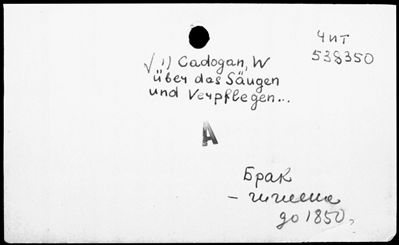 Чит
538350
√ 1) Cadogan, W
über das Säugen
und Verpflegen...
A
Брак
- гигиена
до 1850.